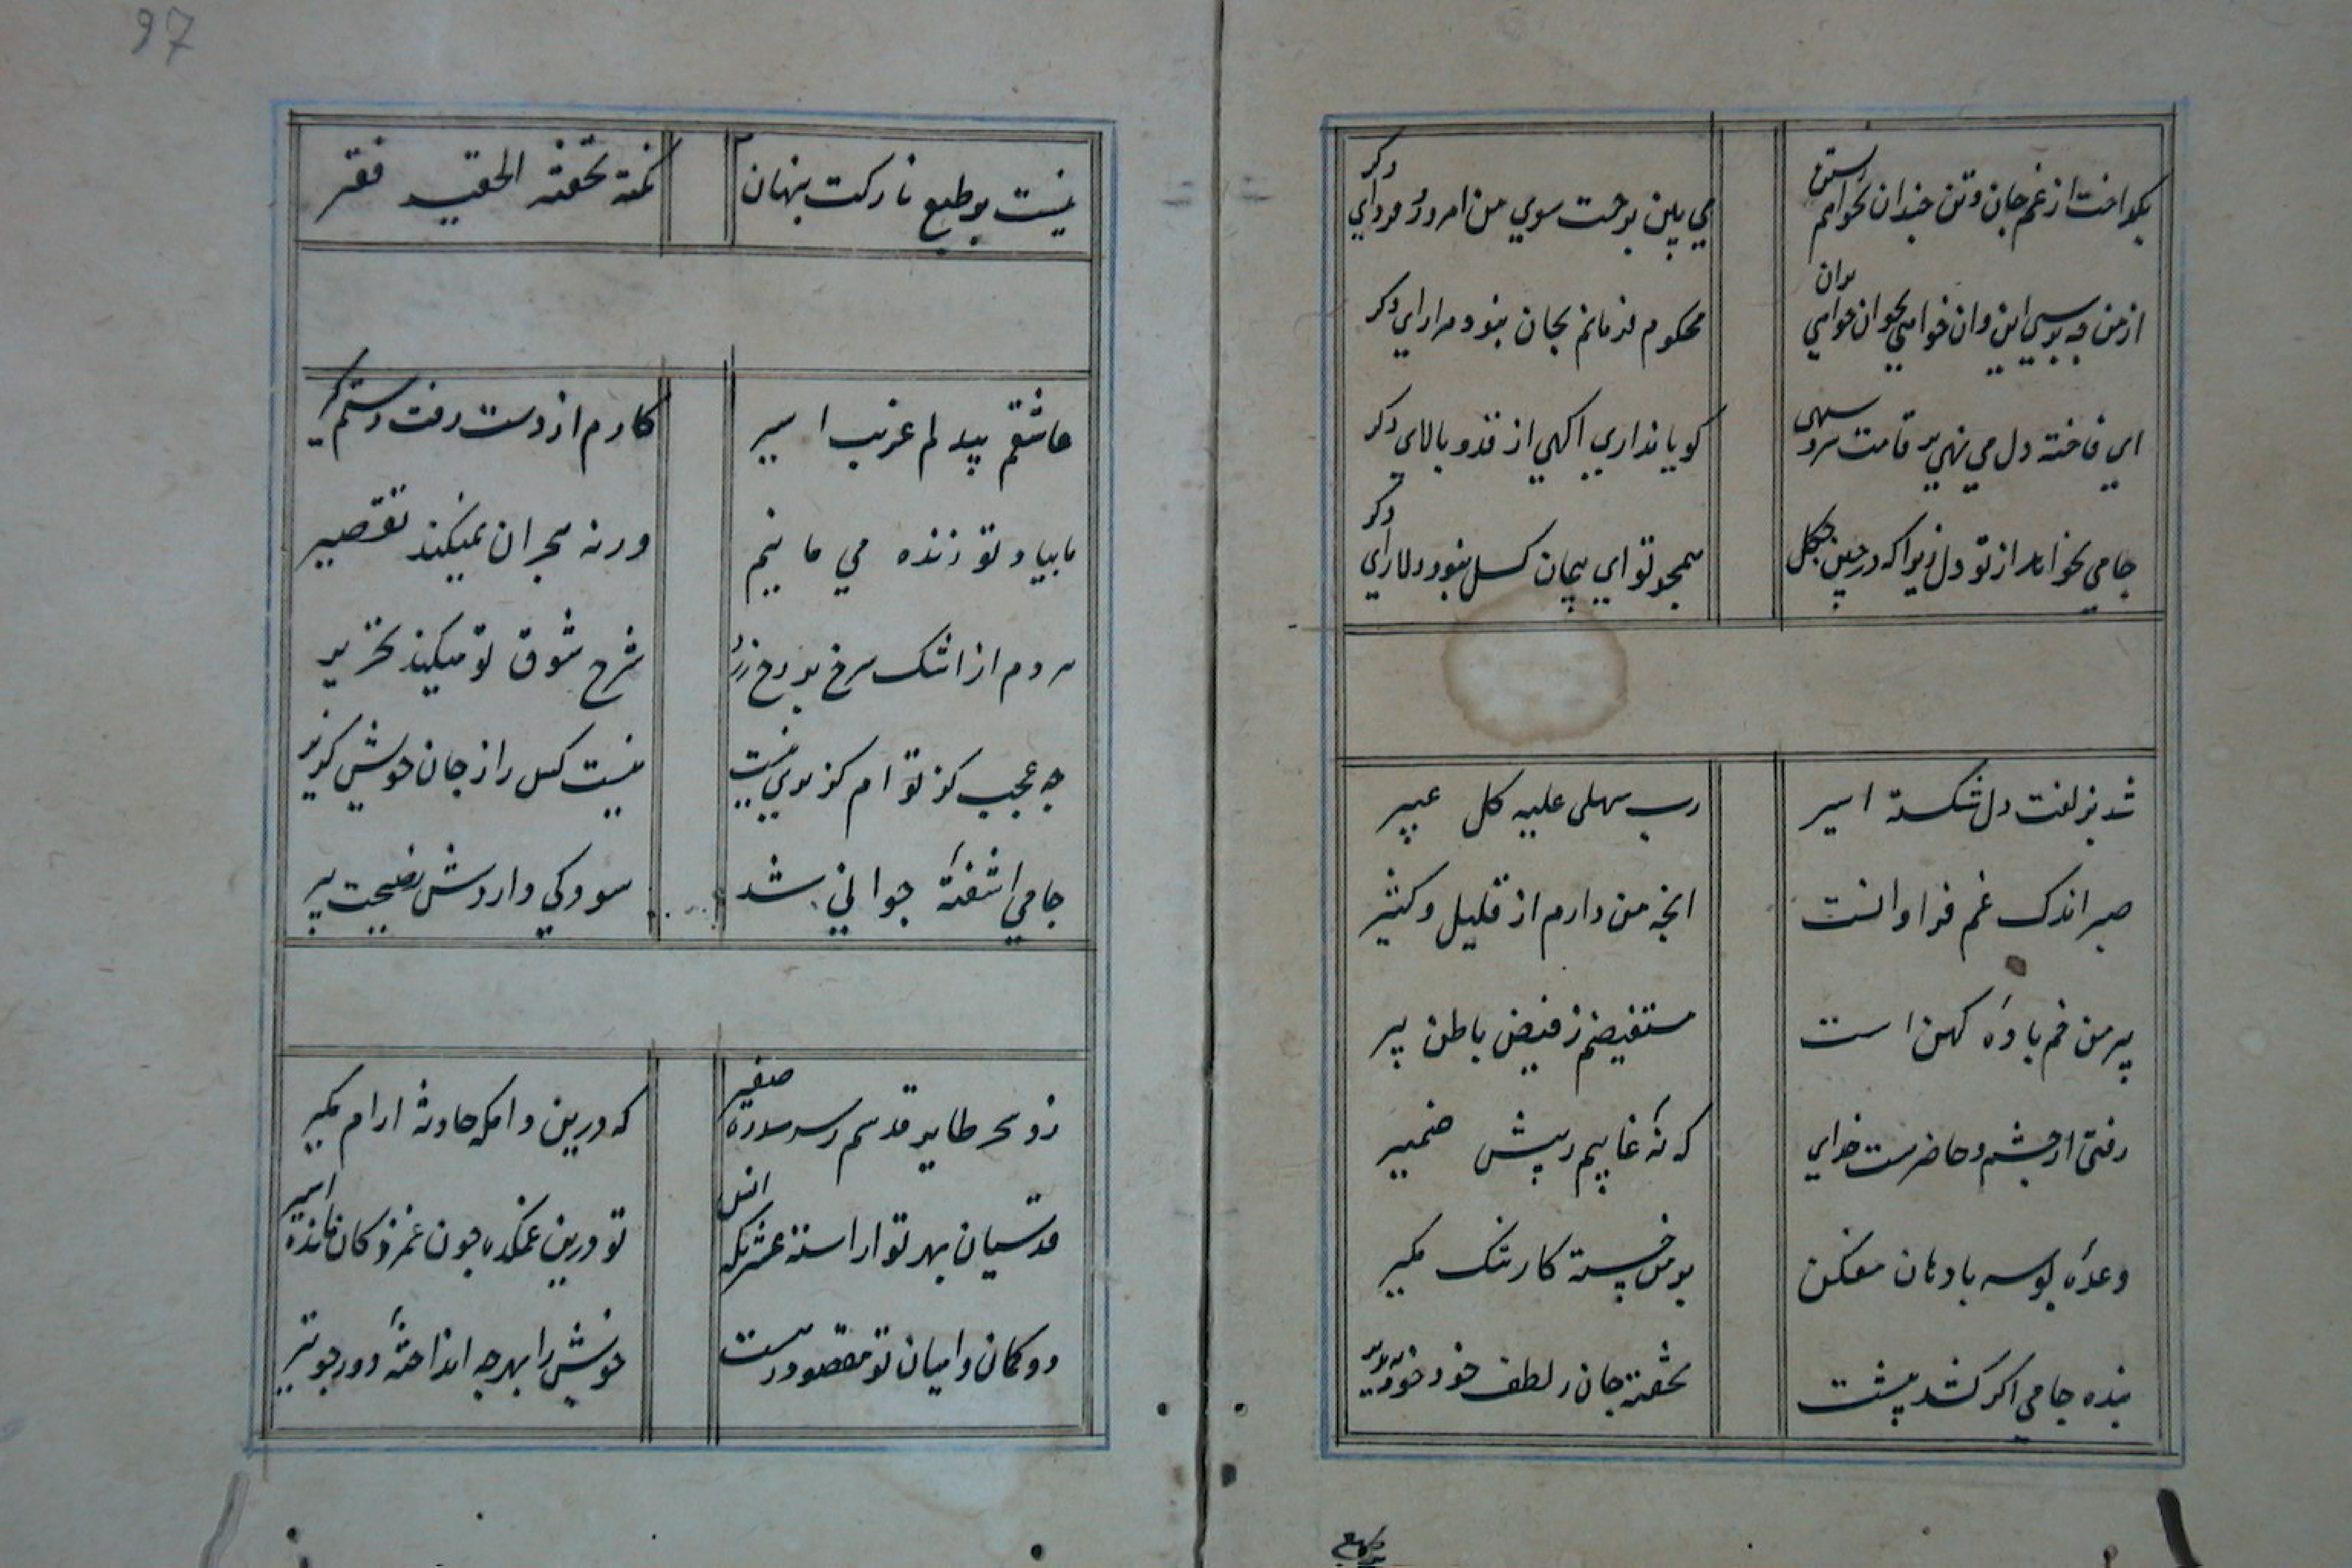 بگداخت از غم جان و تن چندان نخواهم زستن
می بین برحمت سوی من امروز فردای دکر
از من چه پرسی این و ان خواهی بخوان خواهی بران
محکوم فرمانم بجان نبود مرا رای دکر
ای فاخته دل می نهی بر قامت سرو سهی
کویا نداری اکهی از قد و بالای دکر
جامی نخواهد از تو دل زیرا که در چین چکل
همچو تو ای پیمان کسل نبود دلارای دکر
شد بزلفت دل شکسته اسیر
رب سهلی علیه کل عسیر
صبر اندک غم فراوانست
انچه من دارم از قلیل و کثیر
پیر من خم بادهٔ کهن است
مستفیضم ز فیض باطن پیر
رفتی از چشم و حاضرست خدای
که نهٔ غایبم ز پیش ضمیر
وعدهٔ بوسه با دهان مفکن
بر من خسته کار تنک مکیر
بنده جامی اکر کشد پیشت
تحفتهٔ جان ز لطف خود بپذیر
97
نیست بر طبع نازکت پنهان
نکته تحفته الحقیر فقر
عاشقم بیدلم غریب اسیر
کارم از دست رفت دستم کیر
ما بیاد تو زنده می مانیم
ورنه هجران نمیکند تقصیر
مردم از اشک سرخ بر رخ زرد
شرح شوق تو میکند تحریر
چه عجب کز تو ام کزیری نیست
نیست کس را ز جان خویش کزیر
جامی اشفتهٔ جوانی شد
سود کی داردش نصیحت پیر
دوش از طایر قدسم رسد سدره صفیر
که درین دامکه حادثه ارام مکیر
قدسیان بهر تو اراسته عشرتکه انس
تو درین غمکده چون غمزدکان مانده اسیر
دو کمان وا میان تو مقصود رست
خویش را بهر چه انداختهٔ دور چو تیر